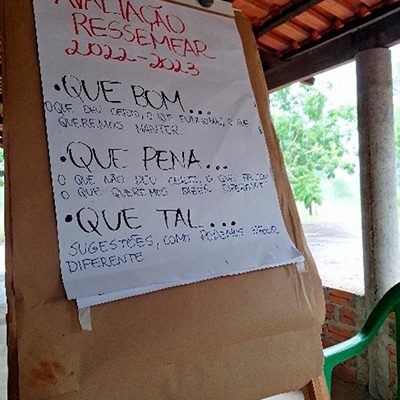 AVALIAÇÃO
RESSEMEAR
2022-2023
• QUE BOM...
O QUE DEU CERTO, O QUE FUNCIONOU, O QUE
QUEREMOS MANTER
• QUE PENA...
O QUE NÃO DEU CERTO, O QUE FALTOU
O QUE QUEREMOS FAZER DIFERENTE
• QUE TAL...
SUGESTÕES, COMO PODEMOS FAZER
DIFERENTE